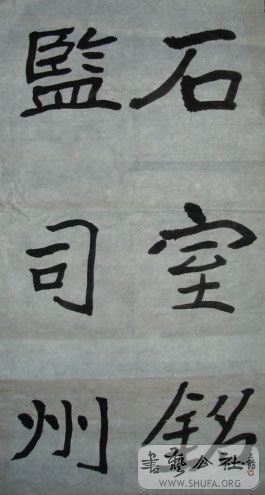 石室銘
監司州
書藝公社
WWW.SHUFA.ORG